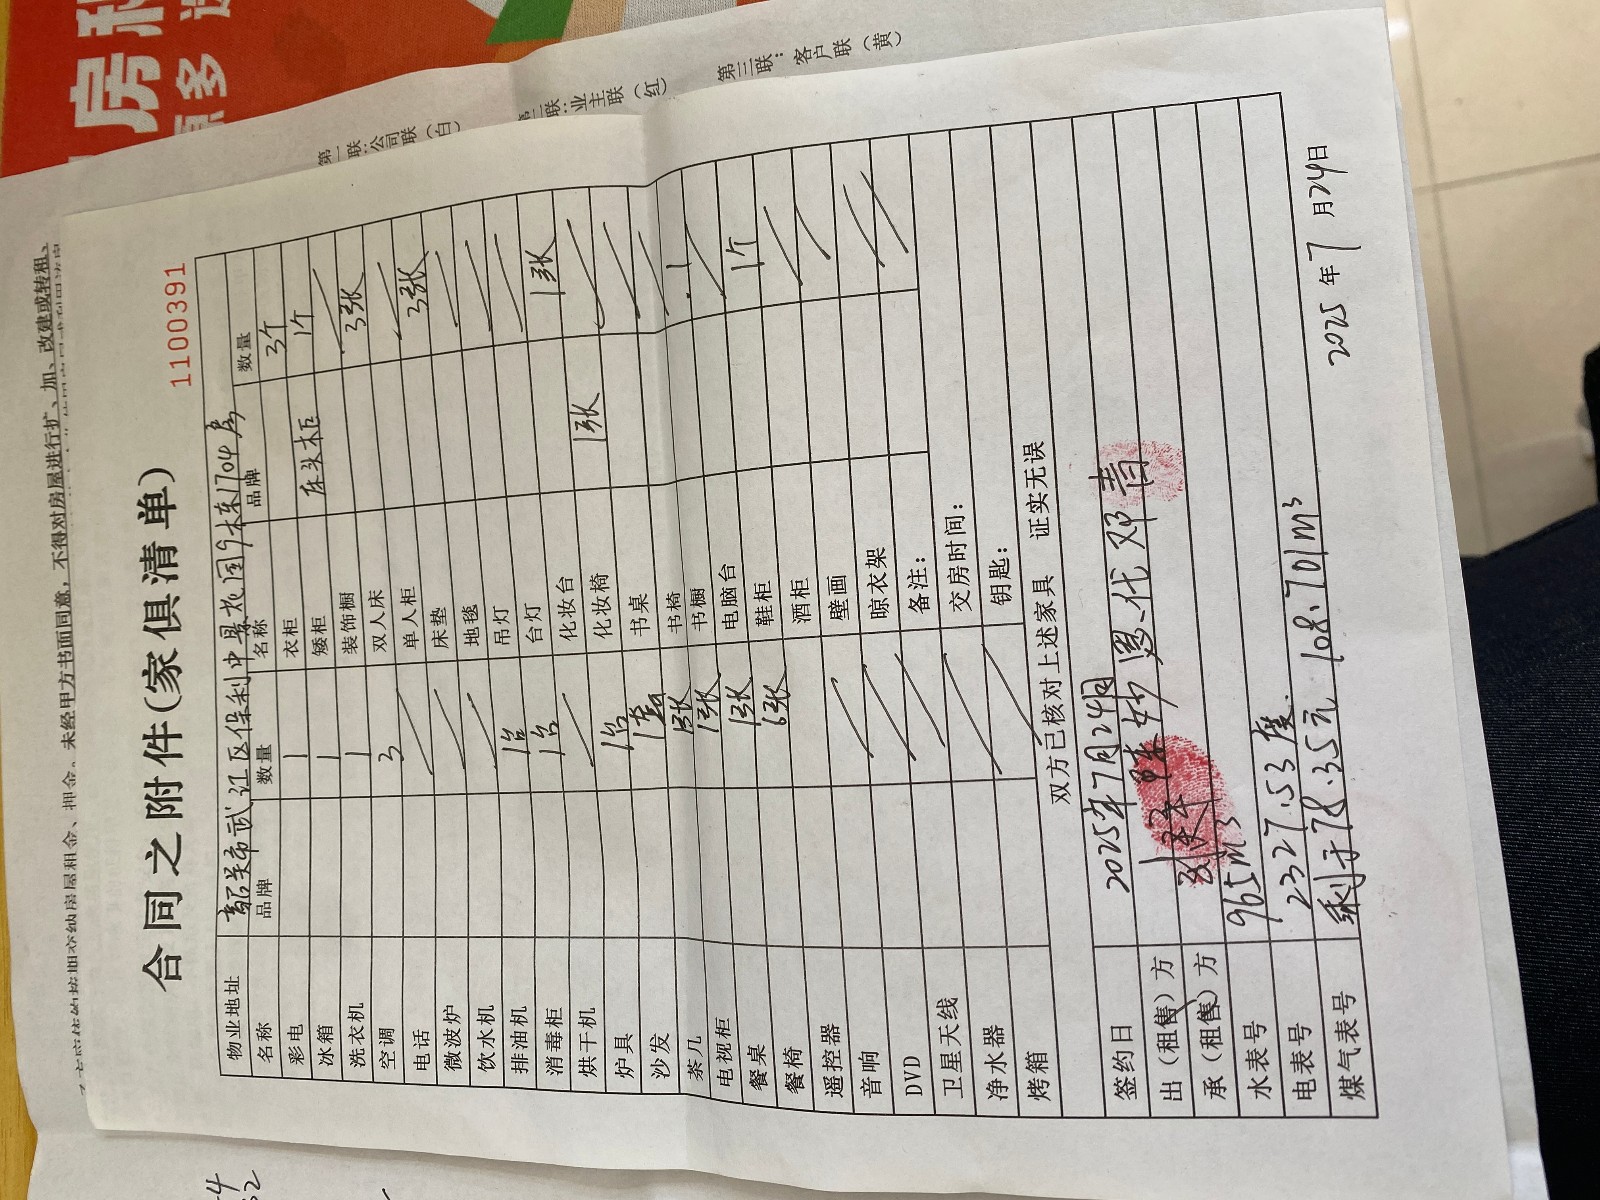 房
多
第一联:公司联(白)
第二联:业主联(红)
第三联:客户联(黄)
未经甲方书面同意,不得对房屋进行扩、加、改建或转租、
合同之附件(家俱清单)
1100391
物业地址 韶关市武江区保利中景花园9栋1704房
名称 品牌 数量 名称 品牌 数量
彩电 1 衣柜 3个
冰箱 1 矮柜 床头柜 1个
洗衣机 1 装饰橱
空调 3 双人床 3张
电话 单人柜
微波炉 床垫 3张
饮水机 地毯
排油机 1台 吊灯
消毒柜 1台 台灯
烘干机 化妆台 1张
炉具 1台 化妆椅 1张
沙发 1套 书桌
茶几 1张 书椅
电视柜 1张 书橱
餐桌 1张 电脑台
餐椅 6张 鞋柜 1个
遥控器 酒柜
音响 壁画
DVD 晾衣架
卫星天线 备注:
净水器 交房时间:
烤箱 钥匙:
双方已核对上述家具 证实无误
签约日 2025年7月24日
出(租售)方
承(租售)方
水表号 965m3
电表号 2327.53度.
煤气表号 剩于78.35元 108.701m³
2025年7月24日